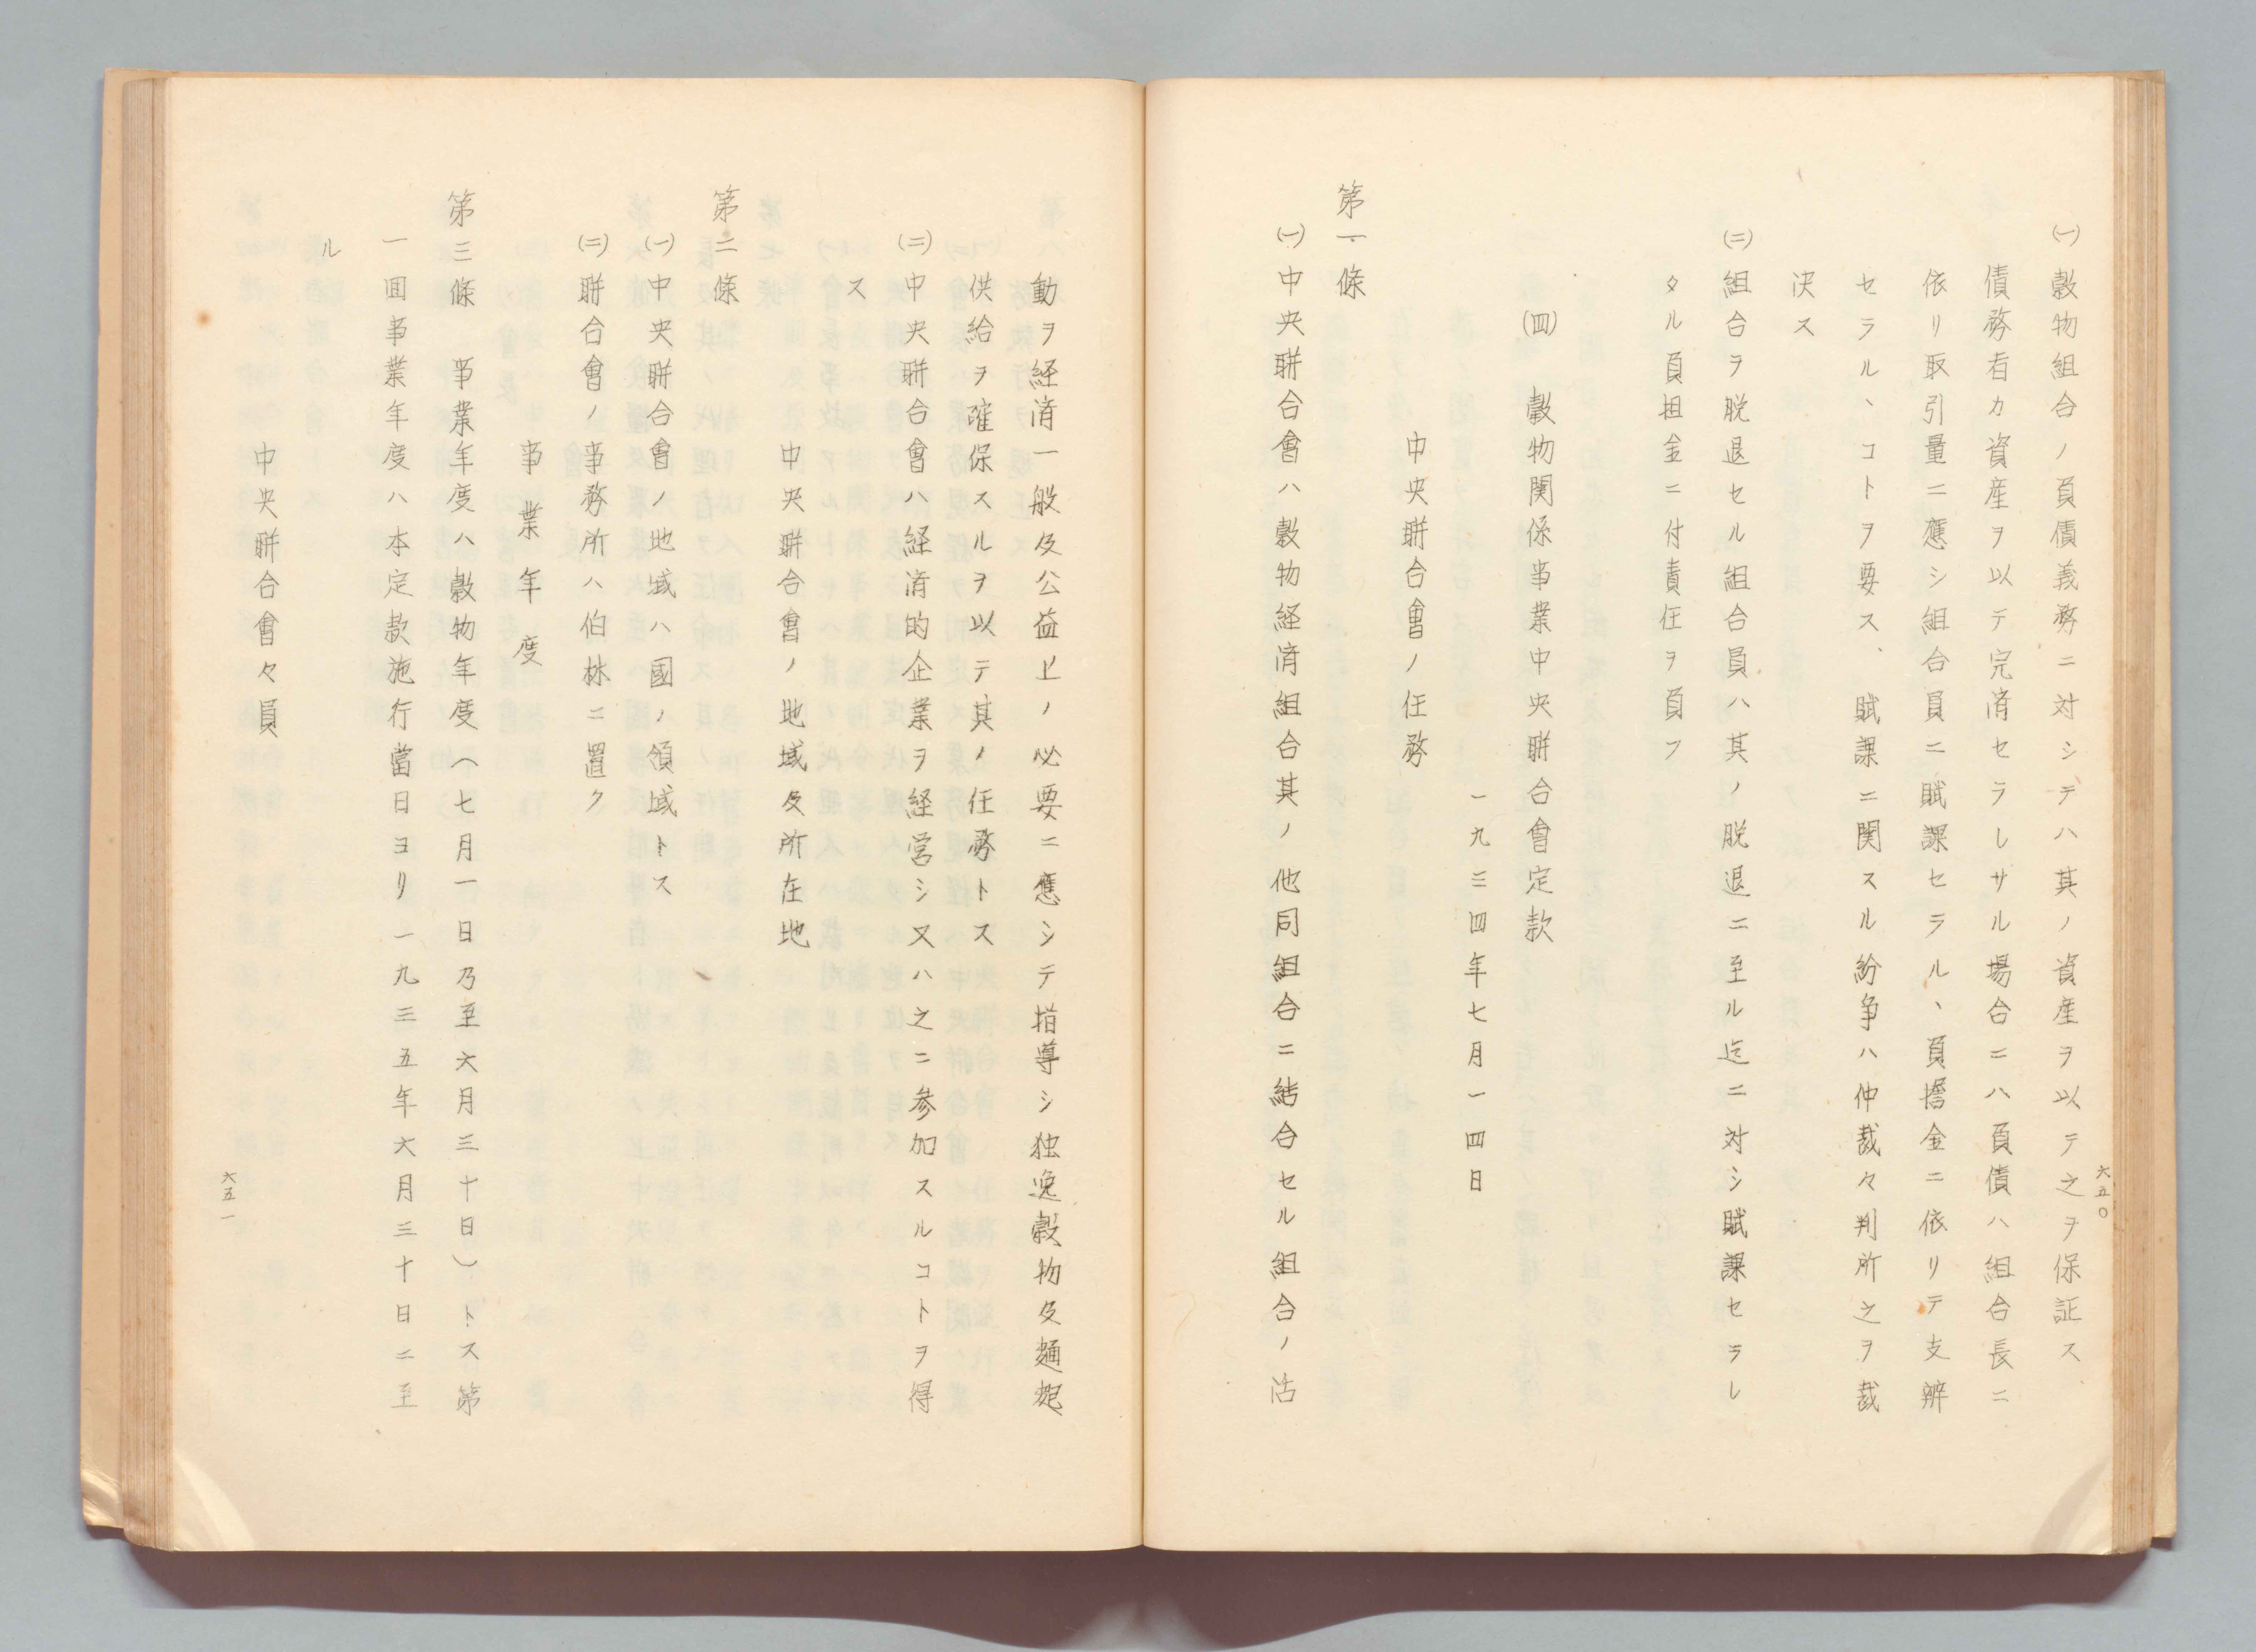 六五〇
㈠穀物組合ノ負債義務ニ対シテハ其ノ資産ヲ以テ之ヲ保証ス
債務者カ資産ヲ以テ完済セラレサル場合ニハ負債ハ組合長ニ
依リ取引量ニ應シ組合員ニ賦課セラル、負擔金ニ依リテ支辨
セラル、コトヲ要ス、賦課ニ関スル紛争ハ仲裁々判所之ヲ裁
决ス
㈡組合ヲ脱退セル組合員ハ其ノ脱退ニ至ル迄ニ対シ賦課セラレ
タル負担金ニ付責任ヲ負フ
㈣ 穀物関係事業中央聨合會定款
一九三四年七月一四日
中央聨合會ノ任務
第一條
㈠中央聨合會ハ穀物経済組合其ノ他同組合ニ結合セル組合ノ活
動ヲ経済一般及公益上ノ必要ニ應シテ指導シ独逸穀物及麺麭
供給ヲ確保スルヲ以テ其ノ任務トス
㈡中央聨合會ハ経済的企業ヲ経営シ又ハ之ニ参加スルコトヲ得
ス
中央聨合會ノ地域及所在地
第二條
㈠中央聨合會ノ地域ハ國ノ領域トス
㈡聨合會ノ事務所ハ伯林ニ置ク
事業年度
第三條 事業年度ハ穀物年度(七月一日乃至六月三十日)トス第
一囬事業年度ハ本定款施行當日ヨリ一九三五年六月三十日ニ至
ル
中央聨合會々員
六五一